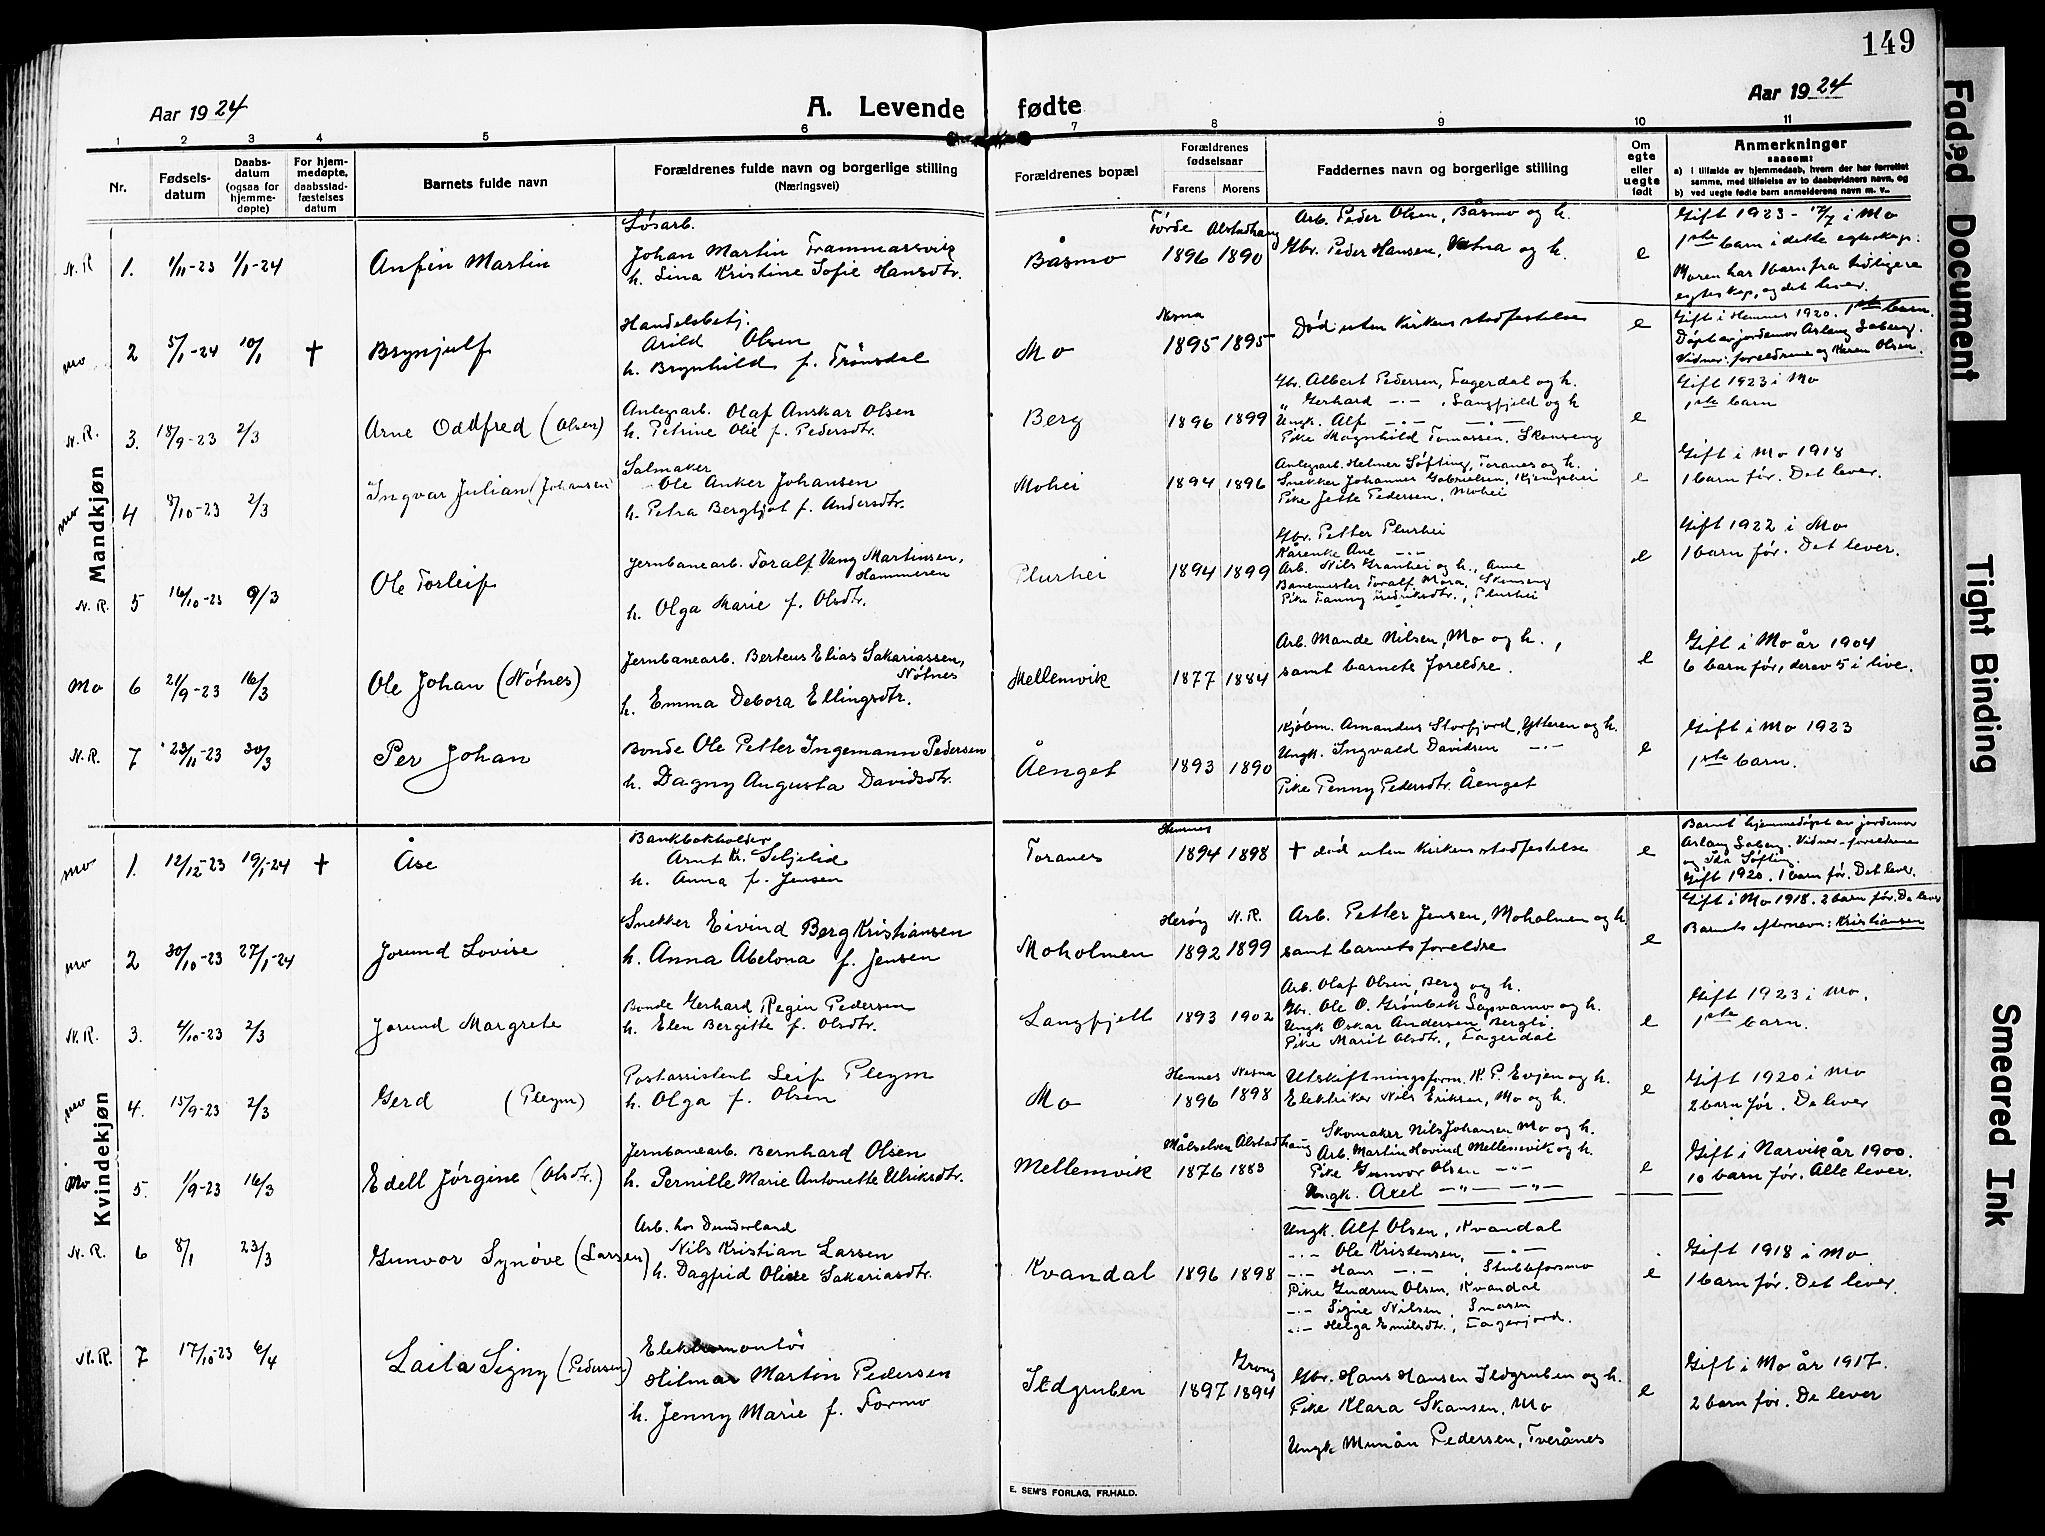 149
Aar 1924
A. Levende fødte
Aar 1924
1 2 3 4 5 6 7 8 9 10 11
Nr.
Fødsels-
datum
Daabs-
datum
(ogsaa for
hjemme-
døpte)
For hjem-
medøpte,
daabsstad-
fæstelses
datum
Barnets fulde navn
Forældrenes fulde navn og borgerlige stilling
(Næringsvei)
Forældrenes bopæl
Forældrenes
fødselsaar
Farens Morens
Faddernes navn og borgerlige stilling
Om
egte
eller
uegte
født
Anmerkninger
saasom:
a) i tilfælde av hjemmedaab, hvem der har forrettet
samme, med tilføielse av to daabsvidners navn, og
b) ved uegte fødte barn anmelderens navn m. v..
Mandkjøn
N.R. 1. 1/11-23 1/1-24 Anfin Martin
Løsarb.
Johan Martin Trammarsvig
h. Lina Kristine Sofie Hansdtr.
Båsmo
Førde Alstadhaug
1896 1890
Arb. Peder Olsen, Båsmo og h.
Gbr. Peder Hansen, og h.
e
Gift 1923 - 17/7 i Mo
1ste barn i dette egteskap:
Moren har 1 barn fra tidligere
egteskap, og det lever.
Mo 2 5/1-24 10/1 † Brynjulf
Handelsbetj.
Arild Olsen
h. Brynhild f. Trønsdal
Mo
Nesna
1895 1895
Død uten Kirkens stadfestelse
e
Gift i Hemnes 1920. 1ste barn.
Døpt av jordemor Arlaug Soberg.
Vidner: foreldrene og Karen Olsen.
N.R. 3. 18/9-23 2/3 Arne Oddfred (Olsen)
Anlegsarb. Olaf Anskar Olsen
h. Petrine Olie f. Pedersdtr.
Berg
1896 1899
Gbr. Albert Pedersen, Fagerdal og h.
„ Gerhard -·-, Langfjeld og h
Ungk. Alf -·- -·-
Pike Magnhild Tomassen, Skonseng
e
Gift 1923 i Mo
1ste barn
Mo 4 8/10-23 2/3 Ingvar Julian (Johansen
Salmaker
Ole Anker Johansen
h. Petra Bergljot f. Andersdtr.
Mohei
1894 1896
Anlegsarb. Helmer Søfting, Toranes og h.
Snekker Johannes Gabrielsen, Kjemphei
Pike Jette Pedersen, Mohei
e
Gift i Mo 1918
1 barn før. Det lever.
N.R. 5 16/10-23 9/3 Ole Torleif
Jernbanearb. Toralf Vang Martinsen,
Hammeren
h. Olga Marie f. Olsdtr.
Plurhei
1894 1899
Gbr. Petter Plurhei
Kårenke Ane -·-
Arb. Nils Granhei og h., Aune
Banemester Toralf Mora, Skonseng
Pike Fanny Fredriksdtr., Plurhei
e
Gift 1922 i Mo
1 barn før. Det lever.
Mo 6 21/9-23 16/3 Ole Johan (Nøtnes)
Jernbanearb. Berteus Elias Sakariassen,
Nøtnes
h. Emma Debora Ellingsdtr.
Mellemvik
1877 1884
Arb. Mande Nilsen, Mo og h.,
samt barnets foreldre.
e
Gift i Mo år 1904
6 barn før, derav 5 i live.
N.R. 7 23/11-23 30/3 Per Johan
Bonde Ole Petter Ingemann Pedersen
h. Dagny Augusta Davidsdtr.
Åenget
1893 1890
Kjøbm. Amandus Storfjord, Ytteren og h.
Ungk. Ingvald Davidsen -·-
Pike Penny Pedersdtr. Åenget
e
Gift i Mo 1923
1ste barn.
Kvindekjøn
Mo 1. 12/12-23 19/1-24 † Åse
Bankbokholder
Arnt Kr. Seljelid
h. Anna f. Jensen
Toranes
Hemnes
1894 1898
† død uten Kirkens stadfestelse
e
Barnet hjemmedøpt av jordemor
Arlaug Soberg. Vidner - foreldrene
og Ida Søfting.
Gift 1920. 1 barn før. Det lever.
Mo 2 30/10-23 27/1-24 Jorund Lovise
Snekker Eivind Berg Kristiansen
h. Anna Abelona f. Jensen
Moholmen
Herøy N.R.
1892 1899
Arb. Petter Jensen, Moholmen og h
samt barnets foreldre
e
Gift i Mo 1918. 2 barn før. De lever
Barnets efternavn: Kristiansen
N.R. 3. 4/10-23 2/3 Jorund Margrete
Bonde Gerhard Regin Pedersen
h. Elen Bergitte f. Olsdtr.
Langfjell
1893 1902
Arb. Olaf Olsen, Berg og h.
Gbr. Ole O. Grønbek Sagvamo og h.
Ungk Oskar Andersen Bergli.
Pike Marit Olsdtr., Fagerdal
e
Gift 1923 i Mo.
1ste barn.
Mo 4. 15/9-23 2/3 Gerd (Pleym)
Postassistent Leif Pleym
h. Olga f. Olsen
Mo
Hemnes Nesna
1896 1898
Utskiftningsform. K. P. Evjen og h.
Elektriker Nils Eriksen, Mo og h.
e
Gift 1920 i Mo
2 barn før. De lever
Mo 5. 1/9-23 16/3 Edell Jørgine (Olsdtr.)
Jernbanearb. Bernhard Olsen
h. Pernille Marie Antonette Ulriksdtr.
Mellemvik
Målselven Alstadhaug
1876 1883
Skomaker Nils Johansen Mo og h.
Arb. Martin Hovind Mellemvik og h.
Pike Gunvor Olsen -"-
Ungk. Axel -"- -"-
e
Gift i Narvik år 1900.
10 barn før. Alle lever.
N.R. 6 8/1 23/3 Gunvor Synøve (Larsen)
Arb. hos Dunderland
Nils Kristian Larsen
h. Dagfrid Olise Sakariasdtr.
Kvandal
1896 1898
Ungk. Alf Olsen, Kvandal
-·- Ole Kristensen, -·-
-·- Hans -·-, Stubbforsmo
Pike Gudrun Olsen, Kvandal
-·- Signe Nilsen, Snåsen
-·- Helga Emilsdtr., Fagerjord.
e
Gift 1918 i Mo
1 barn før. Det lever.
N.R. 7 17/10-23 6/4 Laila Signy (Pedersen)
Elektromontør
Hilmar Martin Pedersen
h. Jenny Marie f. Formo
Ildgruben
Grong
1897 1894
Gbr. Hans Hansen Ildgruben og h.
Pike Klara Skansen, Mo
Ungk Munån Pedersen, Tverånes
e
Gift i Mo år 1917.
2 barn før. De lever
E. SEM'S FORLAG, FR.HALD.
Faded Document
Tight Binding
Smeared Ink